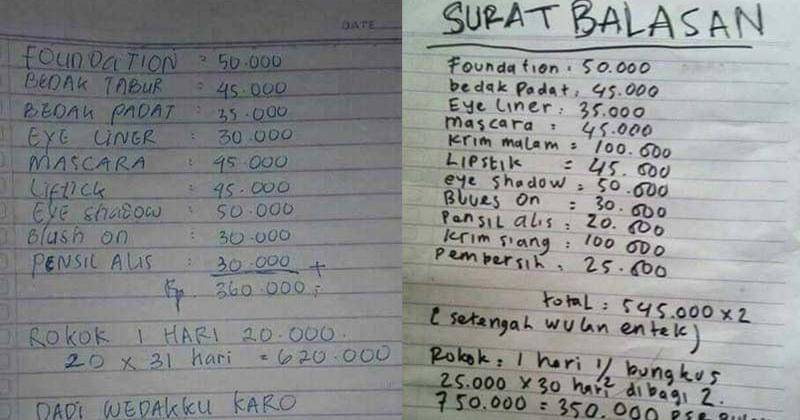 DATE
FOUNDATION = 50.000
BEDAK TABUR : 45.000
BEDAK PADAT : 35.000
EYE LINER : 30.000
MASCARA : 45.000
LIFTICK : 45.000
EYE SHADOW : 50.000
Blush on : 30.000
PENSIL ALIS : 30.000 +
Rp. 360.000;
ROKOK 1 HARI 20.000.
20 x 31 hari = 620.000
DADI WEDAKKU KARO
SURAT BALASAN
Foundation : 50.000
bedak Padat : 45.000
Eye Liner : 35.000
mascara : 45.000
Krim malam = 100.000
Lipstik = 45.000
eye shadow = 50.000
Blues on = 30.000
Pansil alis : 20.000
Krim siang : 100 000
Pembersih : 25.000
total = 545.000 x 2
( setengah wulan entek )
Rokok : 1 hari 1/2 bungkus
25.000 x 30 hari dibagi 2.
750.000 = 350.000 per